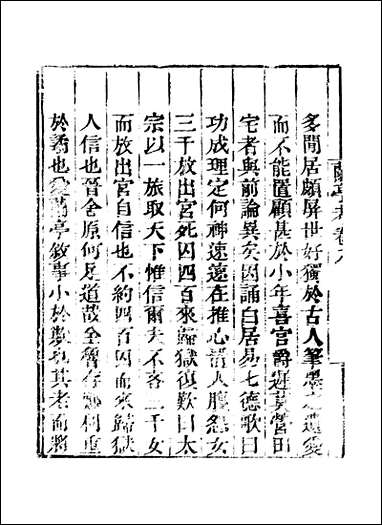 蘭亭考卷八
多閒居頗屏世好獨於古人筆墨之遺愛
而不能置顧甚於小年喜官爵遲莫營田
宅者與前論異矣因誦白居易七德歌曰
功成理定何神速速在推心置人腹怨女
三千放出宮死囚四百來歸獄復歎曰太
宗以一旅取天下惟信爾夫不吝三千女
而放出宮自信也不約四百囚而來歸獄
人信也晉舍原何足道哉全存利重
於譎也蘭亭敘事小於其老而將